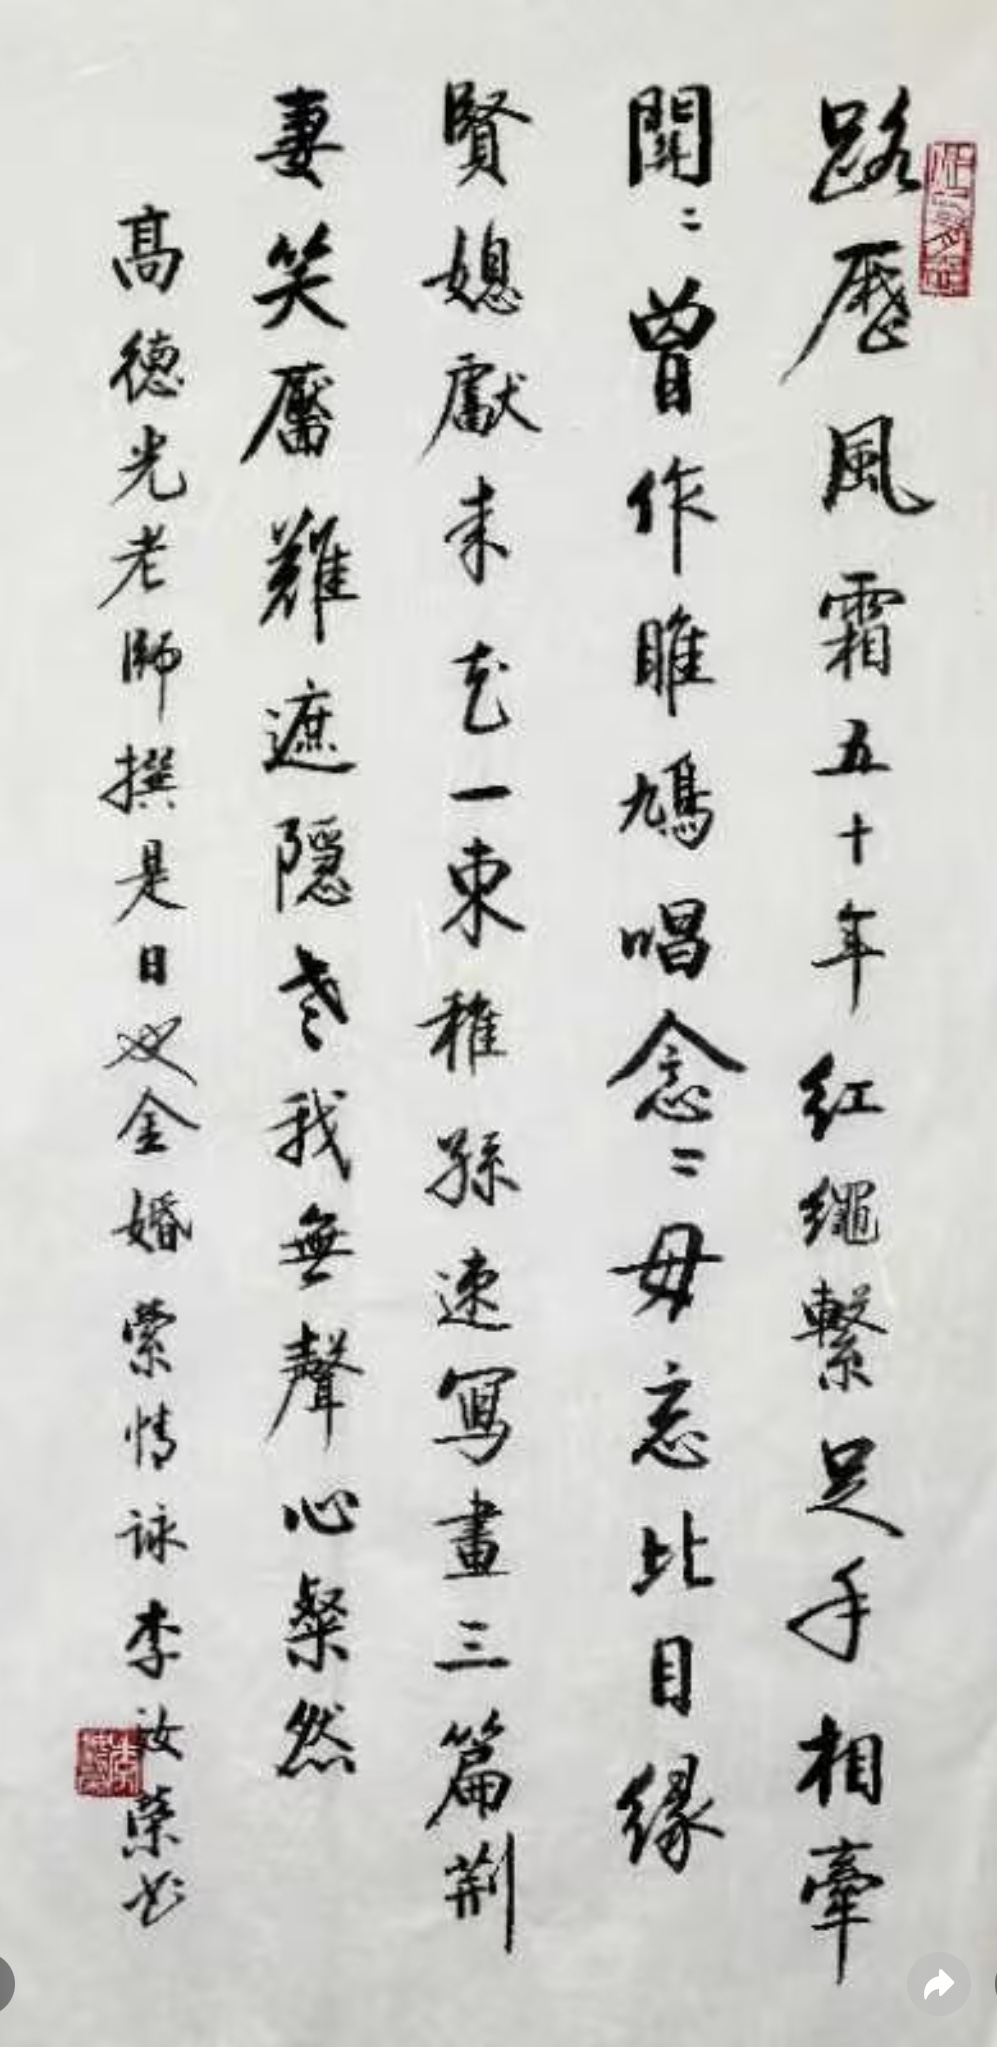 路歷風霜五十年紅繩繫足手相牽
關〻曾作雎鳩唱念〻毋忘比目緣
賢媳獻來花一束稚孫速寫畫三篇荆
妻笑靨難遮隱老我無聲心粲然
高德光老師撰是日又金婚縈情詠李汝榮書